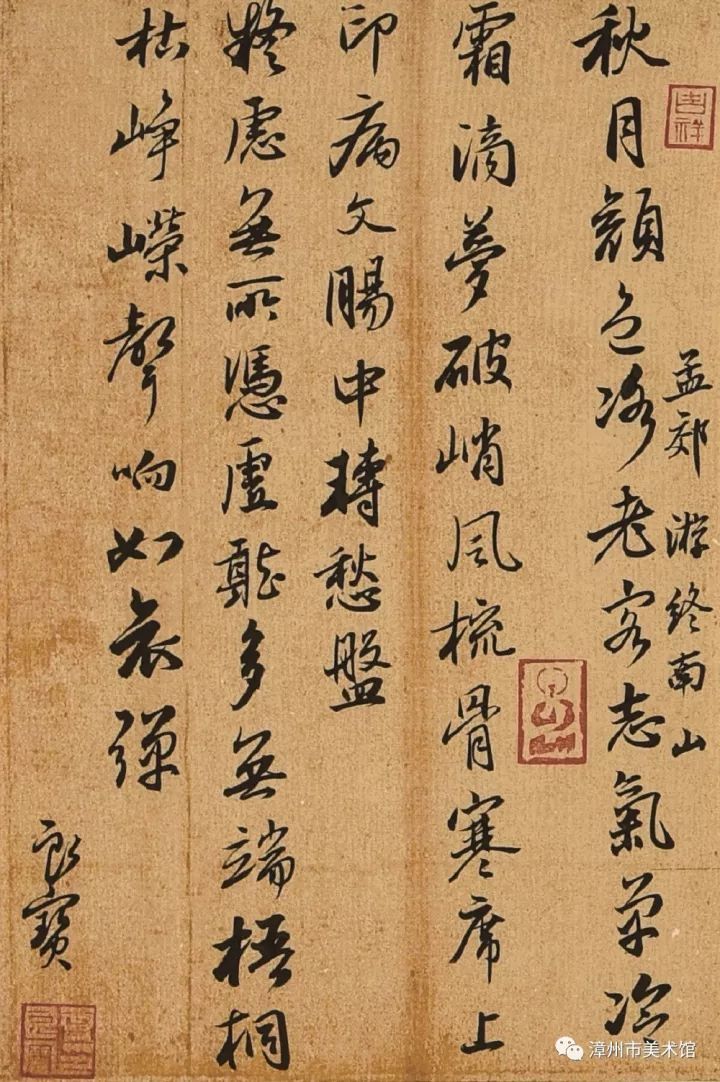 吉祥
孟郊 游終南山
秋月顏色冰老客志氣單冷
霜滴夢破峭風梳骨寒席上
印病文腸中轉愁盤
疑慮無所憑虛聽多無端梧桐
枯崢嶸聲响如哀彈
寶
漳州市美术馆